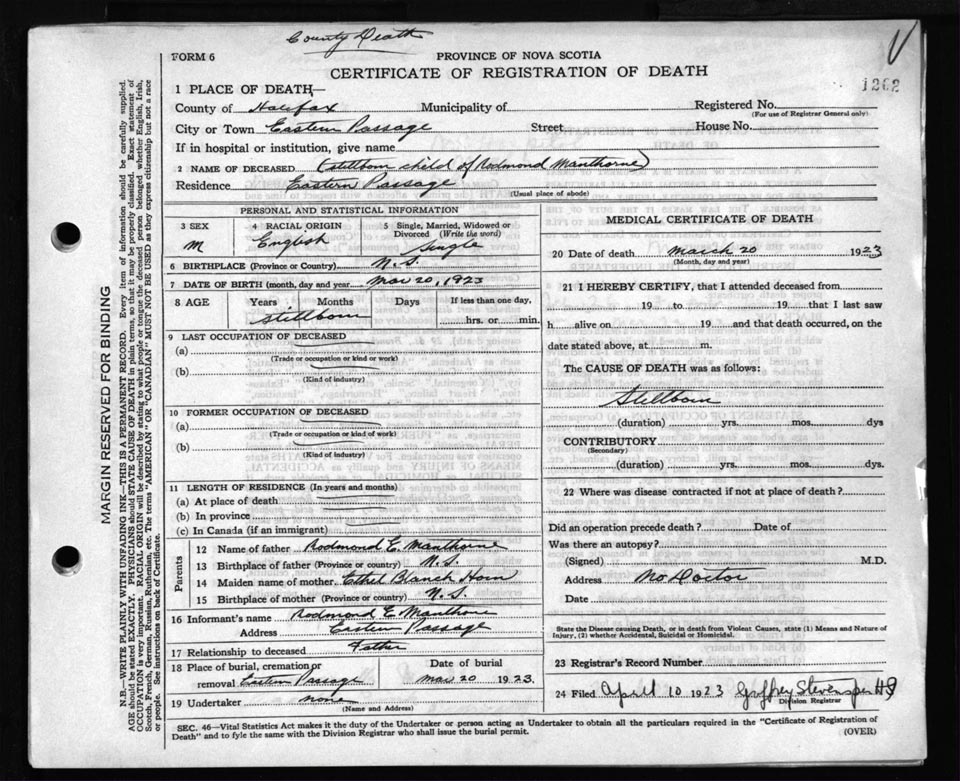 County Death
FORM 6
PROVINCE OF NOVA SCOTIA
CERTIFICATE OF REGISTRATION OF DEATH
1262
1 PLACE OF DEATH—
County of Halifax Municipality of Registered No.
(For use of Registrar General only)
City or Town Eastern Passage Street House No.
If in hospital or institution, give name
2 NAME OF DECEASED (stillborn child of Rodmond Manthorne)
Residence Eastern Passage
(Usual place of abode)
PERSONAL AND STATISTICAL INFORMATION
3 SEX 4 RACIAL ORIGIN 5 Single, Married, Widowed or
Divorced (Write the word)
M English Single
6 BIRTHPLACE (Province or Country) N.S.
7 DATE OF BIRTH (month, day and year) Mar 20, 1923
8 AGE Years Months Days If less than one day,
stillborn hrs. or min.
9 LAST OCCUPATION OF DECEASED
(a)
(Trade or occupation or kind of work)
(b)
(Kind of industry)
10 FORMER OCCUPATION OF DECEASED
(a)
(Trade or occupation or kind of work)
(b)
(Kind of industry)
11 LENGTH OF RESIDENCE (In years and months)
(a) At place of death
(b) In province
(c) In Canada (if an immigrant)
Parents
12 Name of father Rodmond E. Manthorne
13 Birthplace of father (Province or country) N.S.
14 Maiden name of mother Ethel Blanch Horn
15 Birthplace of mother (Province or country) N.S.
16 Informant's name Rodmond E Manthorne
Address Eastern Passage
17 Relationship to deceased Father
18 Place of burial, cremation or Date of burial
removal Eastern Passage Mar 20 1923.
19 Undertaker none
(Name and Address)
MEDICAL CERTIFICATE OF DEATH
20 Date of death March 20 1923
(Month, day and year)
21 I HEREBY CERTIFY, that I attended deceased from
19 to 19 that I last saw
h alive on 19 and that death occurred, on the
date stated above, at m.
The CAUSE OF DEATH was as follows:
Stillborn
(duration) yrs. mos. dys
CONTRIBUTORY
(Secondary)
(duration) yrs. mos. dys.
22 Where was disease contracted if not at place of death?
Did an operation precede death? Date of
Was there an autopsy?
(Signed) M.D.
Address No Doctor
Date
State the Disease causing Death, or in death from Violent Causes, state (1) Means and Nature of
Injury, (2) whether Accidental, Suicidal or Homicidal.
23 Registrar's Record Number
24 Filed April 10 1923
Division Registrar
SEC. 46—Vital Statistics Act makes it the duty of the Undertaker or person acting as Undertaker to obtain all the particulars required in the "Certificate of Registration of
Death" and to fyle the same with the Division Registrar who shall issue the burial permit.
(OVER)
MARGIN RESERVED FOR BINDING
N.B.—WRITE PLAINLY WITH UNFADING INK—THIS IS A PERMANENT RECORD. Every item of information should be carefully supplied.
AGE should be stated EXACTLY. PHYSICIANS should STATE CAUSE OF DEATH in plain terms, so that it may be properly classified. Exact statement of
OCCUPATION is very important. RACIAL ORIGIN will be described by stating to what people or tongue the deceased person belonged whether English, Irish,
Scotch, French, German, Russian, Ruthenian, etc. The terms "AMERICAN" OR "CANADIAN" MUST NOT BE USED as they express citizenship but not a race
or people. See instructions on back of Certificate.